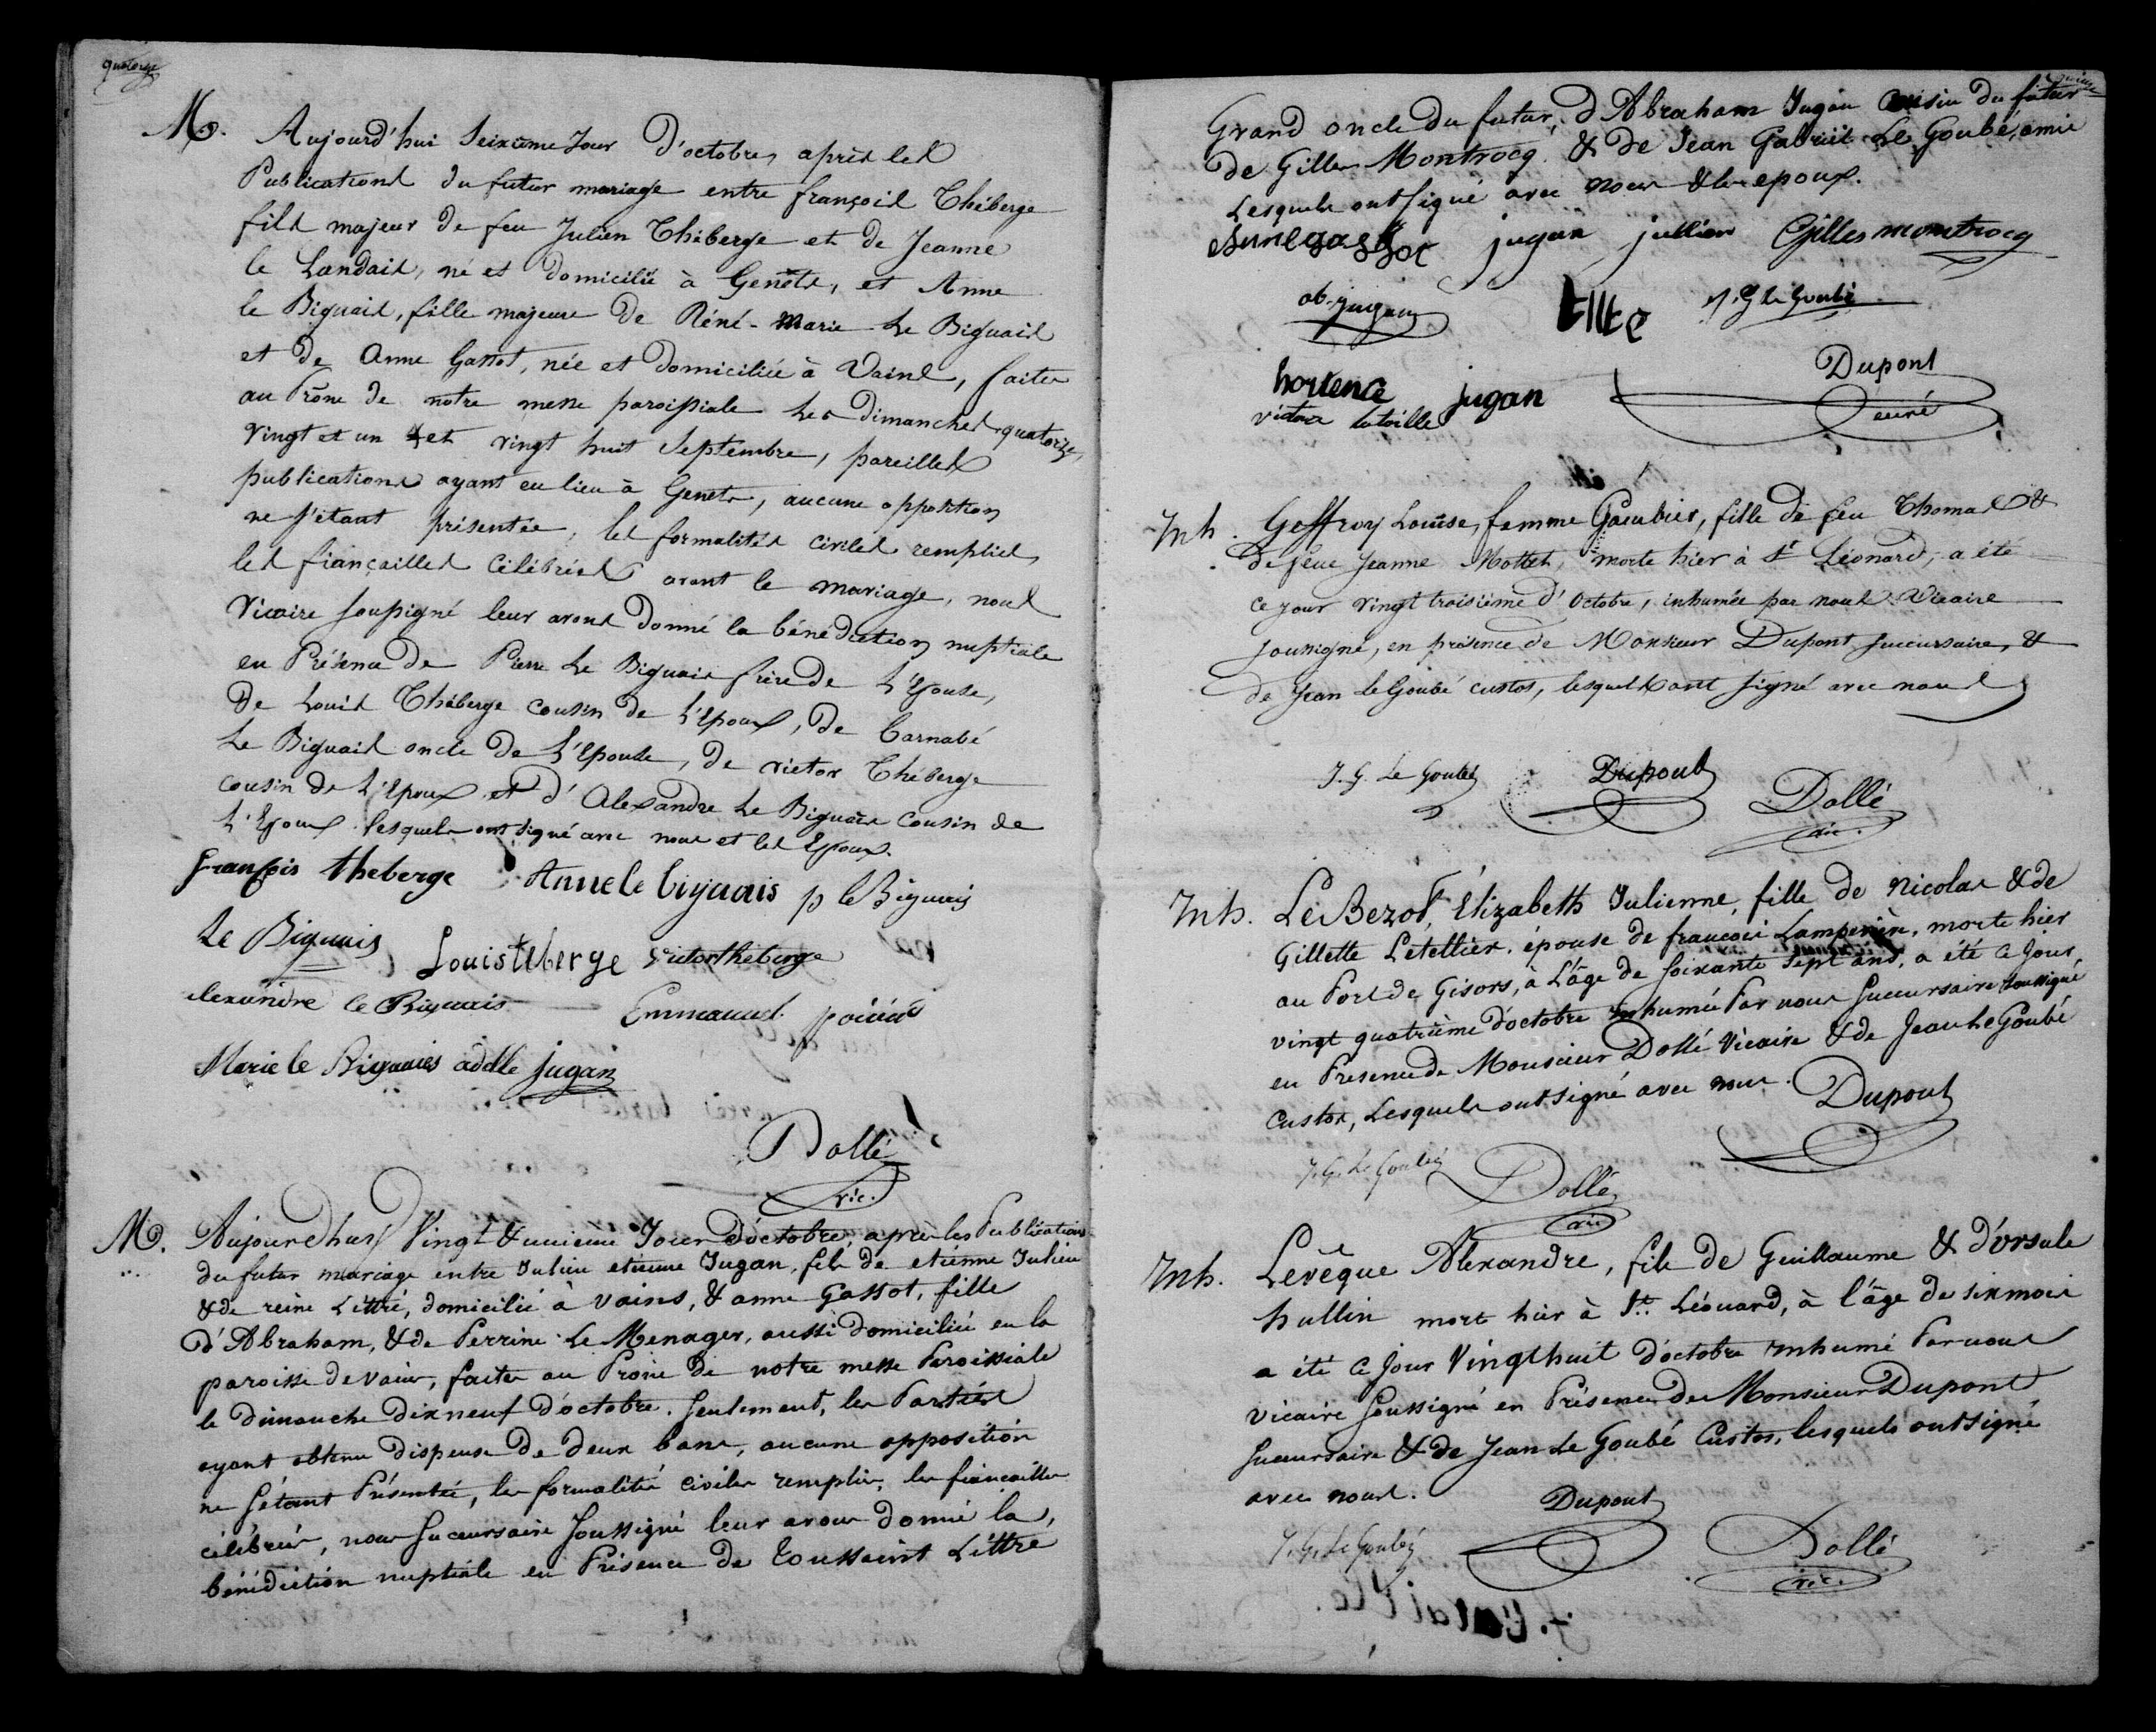 quatorze
M. Aujourd'hui Seixième Jour d'octobre, après les
Publications du futur mariage entre françois Théberge
fils majeur de feu Julien Théberge et de Jeanne
le Landais, né et domicilié à Genêts, et Anne
le Biguais, fille majeure de Réné-Marie Le Biguais
et de Anne Gassot, née et domiciliée à Vains, faites
au Prône de notre messe paroissiale les dimanches quatorze,
vingt et un et vingt huit Septembre, pareilles
publications ayant eu lieu à Genets, aucune opposition
ne s'étant présentée, les formalités civiles remplies,
les fiançailles célébrées avant le mariage, nous
Vicaire soussigné leur avons donné la bénédiction nuptiale
en Présence de Pierre Le Biguais frère de L'Epouse,
de Louis Théberge cousin de L'Epoux, de barnabé
Le Biguais oncle de L'Epouse, de victor Théberge
cousin de L'Epoux et d'Alexandre Le Biguais cousin de
L'Epoux lesquels ont signé avec nous et les Epoux.
François theberge Anne le biguais p le Biguais
Le Biguais Louis teberge victor theberge
alexandre le Biguais Emmanuel
Marie le Biguais adelle jugan
Dollé
vic.
M. Aujourdhuy Vingt & unieme Jour d'octobre, après les Publications
du futur mariage entre Julien etienne Jugan, fils de etienne Julien
& de reine Littré, domicilié à vains, & anne Gassot, fille
d'Abraham, & de Perrine Le Menager, aussi domiciliée en la
paroisse de vains, faites au Prône de notre messe Paroissiale
le dimanche dixneuf d'octobre. Seulement, les Parties
ayant obtenu dispense de deux bans, aucune opposition
ne s'étant Présentée, les formalités civiles remplies, les fiancailles
célébrées, nous Succursaire Soussigné leur avons donné la,
bénédiction nuptiale en Présence de Toussaint Littré
Grand oncle du futur, d'Abraham Jugan Cousin du futur
de Gilles Montrocq & de Jean Gabriel Le Goubé, amis
Lesquels ont signé avec nous & les epoux.
anne gassot jugan jullien Gilles montrocq
ab. jugan Littré J. G le Goubé
hortence jugan Dupont
victor curé
Inh. Geffroy Louise, femme Gaubier, fille de feu Thomas &
de feue Jeanne Mottet, morte hier à St Léonard, a été
ce jour vingt troisième d'Octobre, inhumée par nous Vicaire
soussigné, en présence de Monsieur Dupont succursaire, &
de Jean le Goubé custos, lesquels ont signé avec nous
J. G. Le Goubé Dupont Dollé
vic.
Inh. Le Bezot, Elizabeth Julienne, fille de Nicolas & de
Gillette Letellier, épouse de francois Lamperière, morte hier
au Port de Gisors, à L'âge de soixante sept ans, a été ce jour
vingt quatrième d'octobre inhumée Par nous Succursaire soussigné
en Presence de Monsieur Dollé Vicaire & de Jean Le Goubé
custos, Lesquels ont signé avec nous. Dupont
J. G. Le Goubé Dollé
vic
Inh. Levêque Alexandre, fils de Guillaume & d'Ursule
hullin mort hier à St. Léonard, à l'âge de six mois
a été ce jour Vingthuit d'octobre inhumé Par nous
vicaire Soussigné en Présence de Monsieur Dupont
Succursaire & de Jean Le Goubé Custos, lesquels ont signé
avec nous. Dupont
J. G. Le Goubé Dollé
vic.